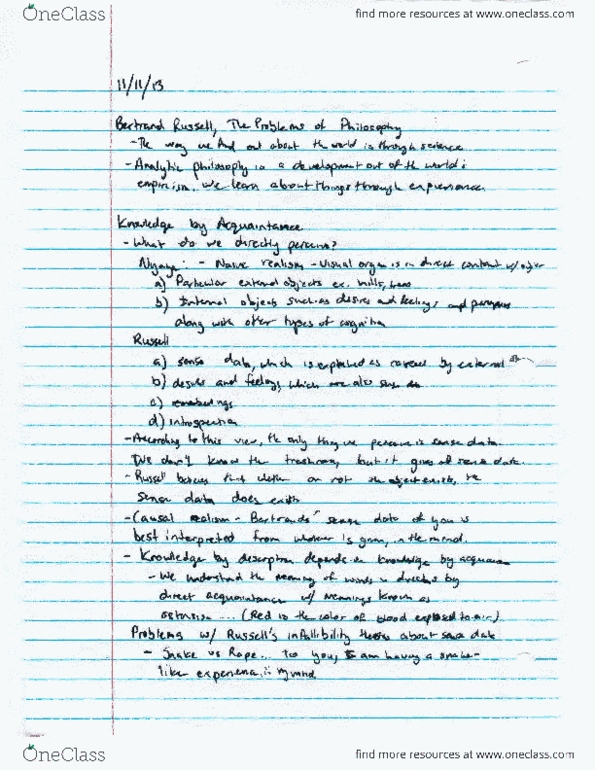 OneClass
find more resources at www.oneclass.com
11/11/13
Bertrand Russell, The Problems of Philosophy
- The way we find out about the world is through science
- Analytic philosophy is a development out of the world's
empiricism. We learn about things through experience
Knowledge by Acquaintance
- What do we directly perceive?
Nyaya: - Naive realism - Visual organ is in direct contact w/ object
a) Particular external objects ex. walls, trees
b) Internal objects such as desires and feelings and
along with other types of cognition
Russell
a) sense data, which is explained as caused by external
b) desires and feelings, which are also sense
c)
d) introspection
- According to this view, the only thing we perceive is sense data.
We don't know the but it gives off sense data.
- Russell believes that whether or not the object exists, the
sense data does exist
- Causal realism - Bertrand's sense data of you is
best interpreted from whatever is going in the normal.
- Knowledge by description depends on knowledge by acquaintance
- We understand the meaning of words in by
direct acquaintance w/ meanings known as
ostension ... (Red is the color of blood exposed to air)
Problems w/ Russell's infallibility theses about sense data
- Snake vs Rope ... to you, I am having a snake-
like experience, in my mind.
OneClass
find more resources at www.oneclass.com